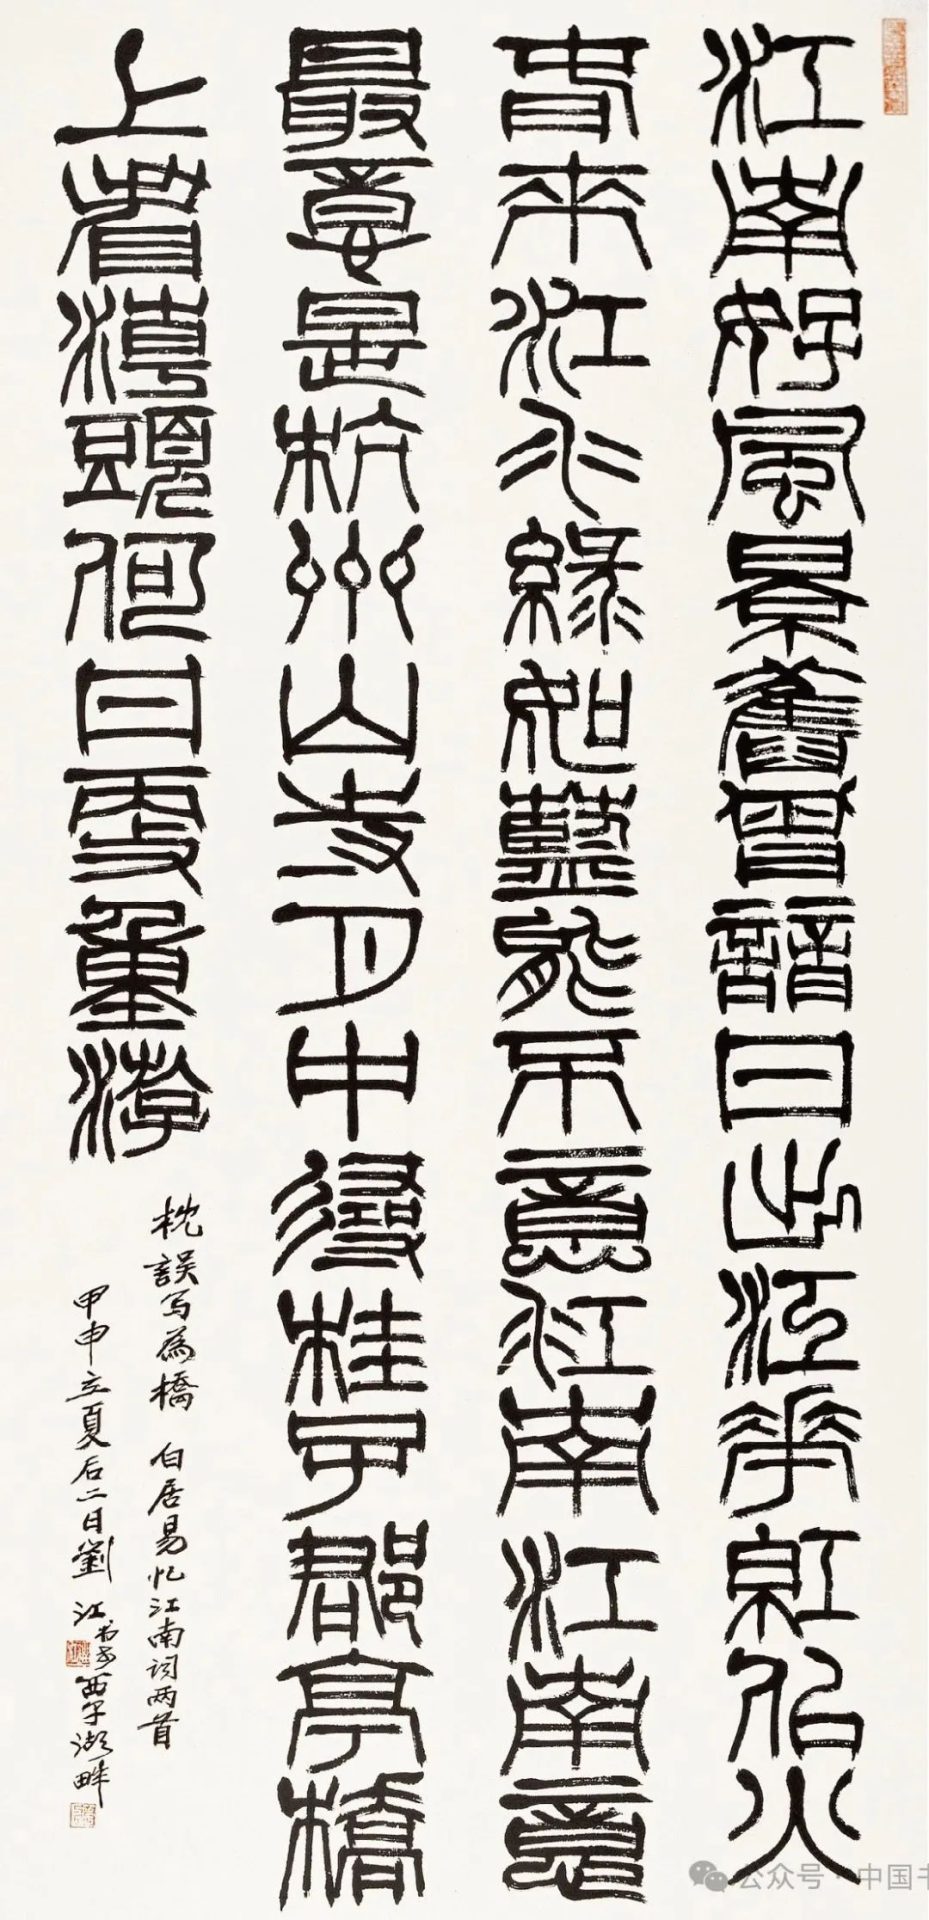 江南好風景舊曾諳日出江華紅似火
春來江水綠如藍能不意江南江南意
最意是杭州山寺月中尋桂子郡亭橋
上看濤頭何日更重游
枕誤写為橋 白居易忆江南词两首
甲申立夏后二日劉江书于西子湖畔
公众号 · 中国书